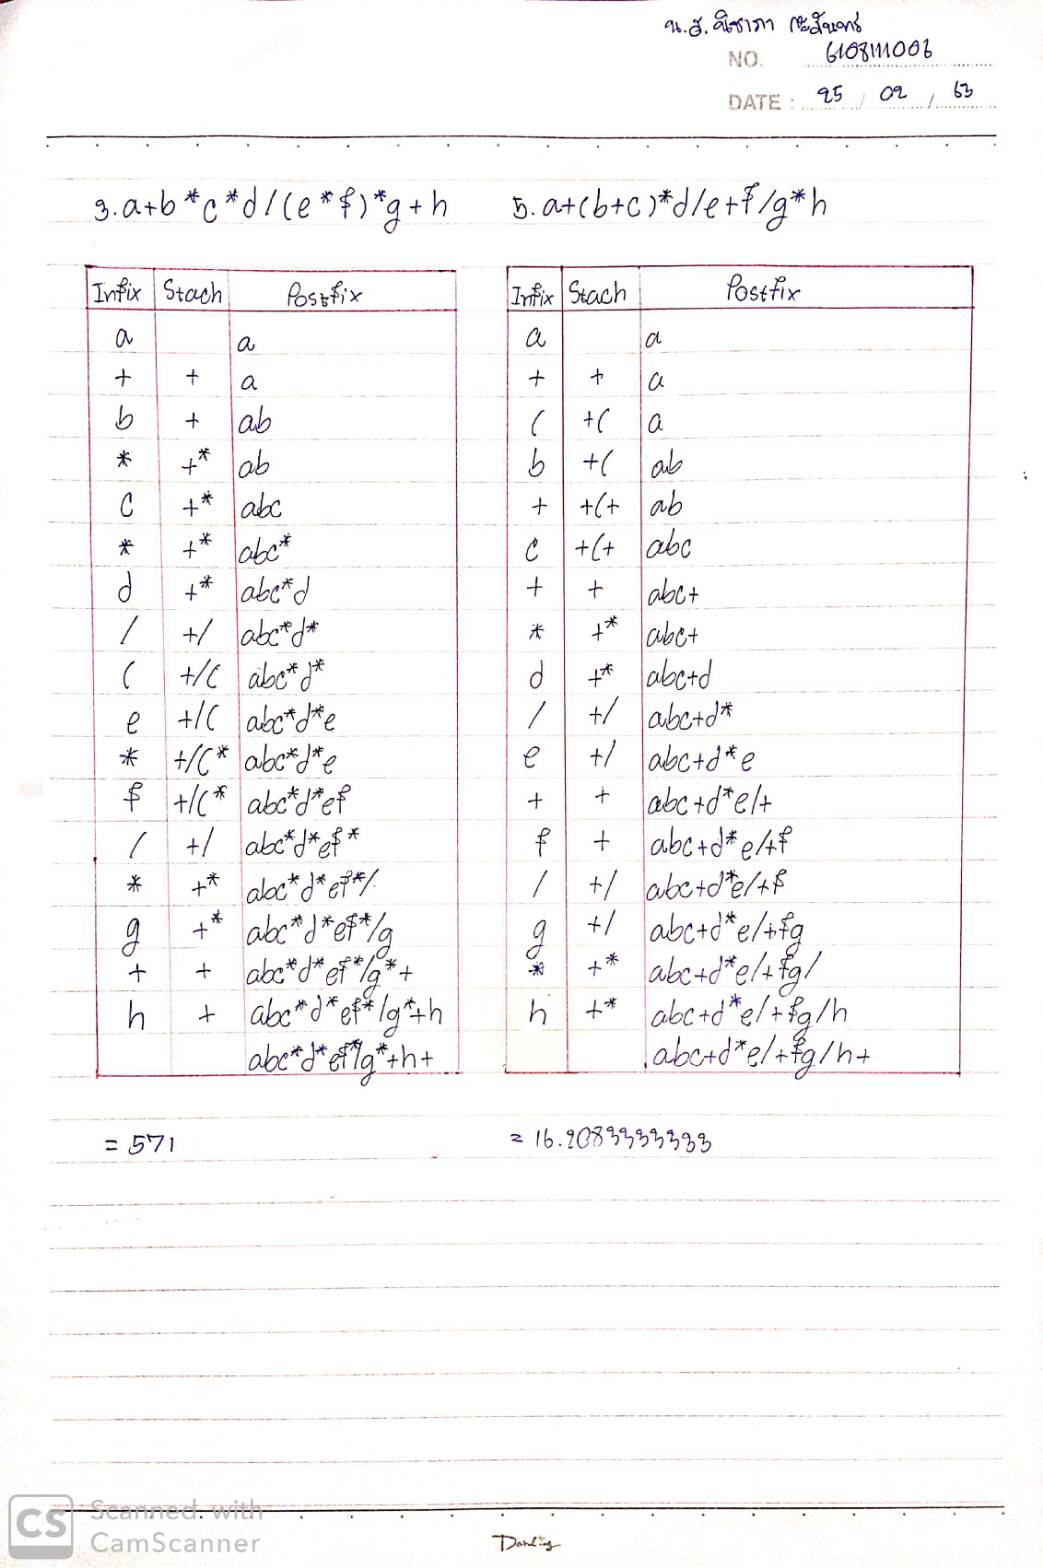 น.ส. ณิชาภา
NO. 6108111006
DATE : 25 / 02 / 63
3. a+b*c*d/(e*f)*g+h
Infix Stach Postfix
a a
+ + a
b + ab
* +* ab
c +* abc
* +* abc*
d +* abc*d
/ +/ abc*d*
( +/( abc*d*
e +/( abc*d*e
* +/(* abc*d*e
f +/(* abc*d*ef
/ +/ abc*d*ef*
* +* abc*d*ef*/
g +* abc*d*ef*/g
+ + abc*d*ef*/g*+
h + abc*d*ef*/g*+h
abc*d*ef*/g*+h+
= 571
5. a+(b+c)*d/e+f/g*h
Infix Stach Postfix
a a
+ + a
( +( a
b +( ab
+ +(+ ab
c +(+ abc
+ + abc+
* +* abc+
d +* abc+d
/ +/ abc+d*
e +/ abc+d*e
+ + abc+d*e/+
f + abc+d*e/+f
/ +/ abc+d*e/+f
g +/ abc+d*e/+fg
* +* abc+d*e/+fg/
h +* abc+d*e/+fg/h
abc+d*e/+fg/h+
= 16.2083333333
CS Scanned with
CamScanner
Darling